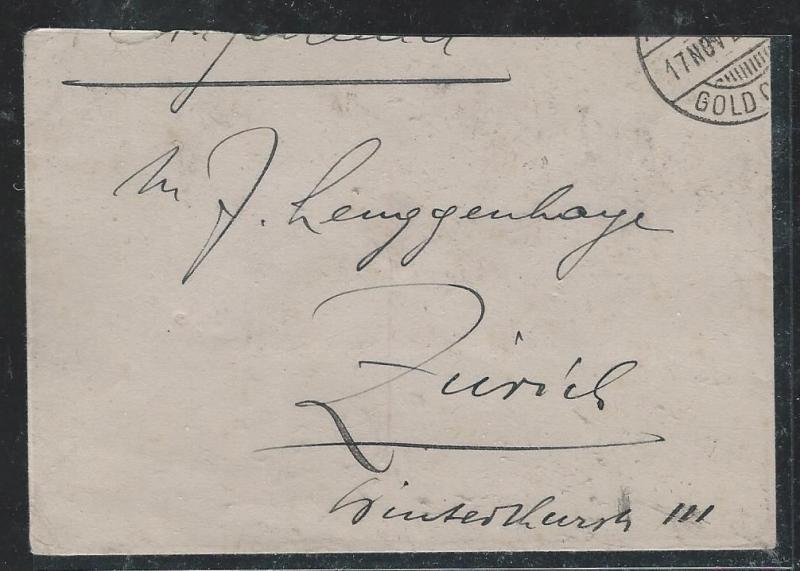 17 NOV
GOLD C
M J. Lenggenhage
Zürich
Winterthurstr 111